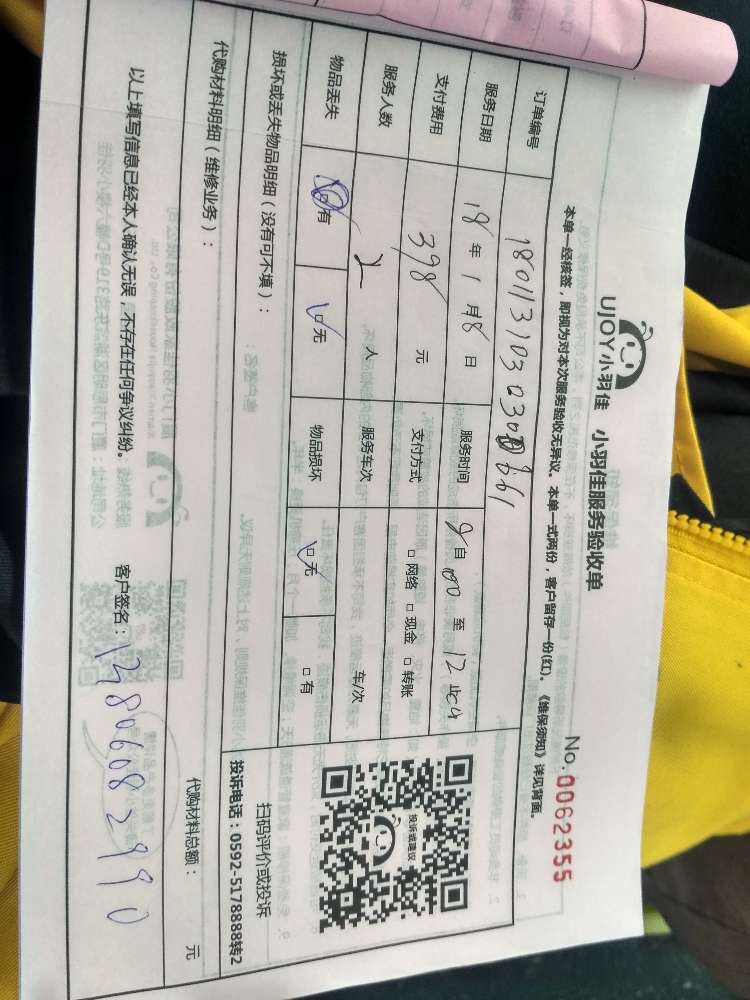 UJOY小羽佳 小羽佳服务验收单
No. 0062355
本单一经核签，即视为对本次服务验收无异议。本单一式两份，客户留存一份(红)。《维保须知》详见背面。
订单编号
服务日期 18 年 1 月 8 日 服务时间 自 至 12
支付费用 398 元 支付方式 □ 网络 □ 现金 □ 转账
服务人数 人 服务车次 车/次
物品丢失 □有 □无 物品损坏 □无 □有
损坏或丢失物品明细（没有可不填）：
扫码评价或投诉
投诉电话：0592-5178888转2
投诉或建议
代购材料明细（维修业务）： 代购材料总额： 元
以上填写信息已经本人确认无误，不存在任何争议纠纷。 客户签名：13806082990